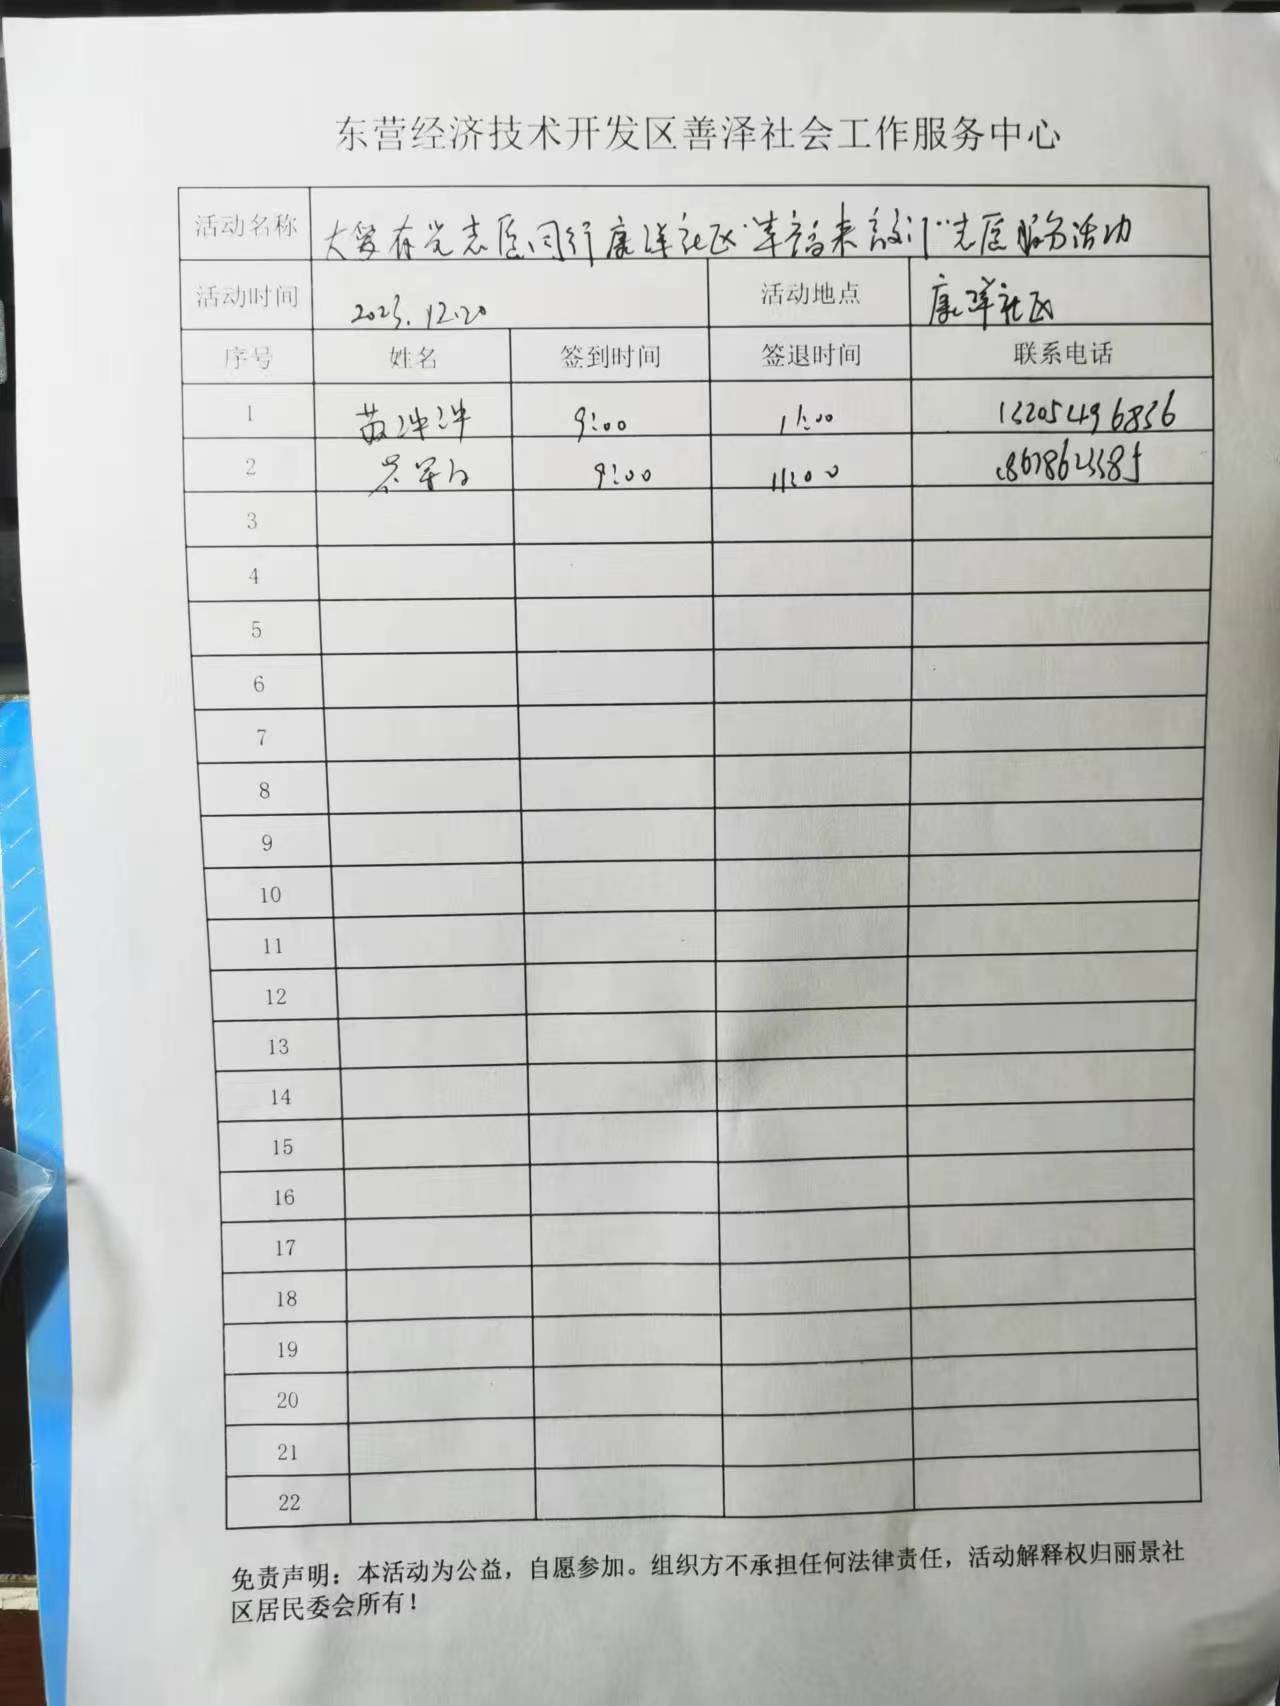 东营经济技术开发区善泽社会工作服务中心
活动名称 大爱有党志愿同行康洋社区"幸福来敲门"志愿服务活动
活动时间 2023.12.20 活动地点 康洋社区
序号 姓名 签到时间 签退时间 联系电话
1 9:00 11:00 13205496836
2 9:00 11:00
3
4
5
6
7
8
9
10
11
12
13
14
15
16
17
18
19
20
21
22
免责声明：本活动为公益，自愿参加。组织方不承担任何法律责任，活动解释权归丽景社
区居民委会所有！